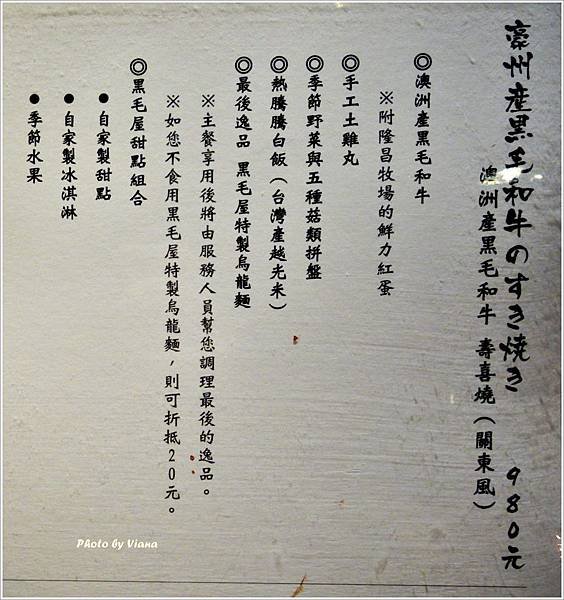 豪州産黒毛和牛のすき焼き 980元
澳洲產黑毛和牛 壽喜燒（關東風）
◎澳洲產黑毛和牛
※附隆昌牧場的鮮力紅蛋
◎手工土雞丸
◎季節野菜與五種菇類拼盤
◎熱騰騰白飯（台灣產越光米）
◎最後逸品 黑毛屋特製烏龍麵
※主餐享用後將由服務人員幫您調理最後的逸品。
※如您不食用黑毛屋特製烏龍麵，則可折抵20元。
◎黑毛屋甜點組合
●自家製甜點
●自家製冰淇淋
●季節水果
Photo by Viana